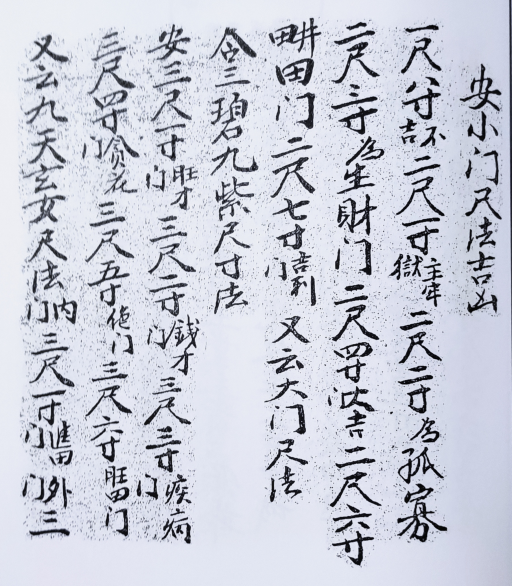 安小门尺法吉凶
一尺八寸不吉 二尺一寸主牢獄 二尺二寸為孤寡
二尺三寸為生財门 二尺四寸大吉 二尺六寸
畊田门 二尺七寸吉利门 又云大门尺法
合三碧九紫尺寸法
安三尺一寸旺才门 三尺二寸錢才门 三尺三寸疾病门
三尺四寸貪花门 三尺五寸绝门 三尺六寸旺田门
又云九天玄女尺法内门 三尺一寸進田门 外门三